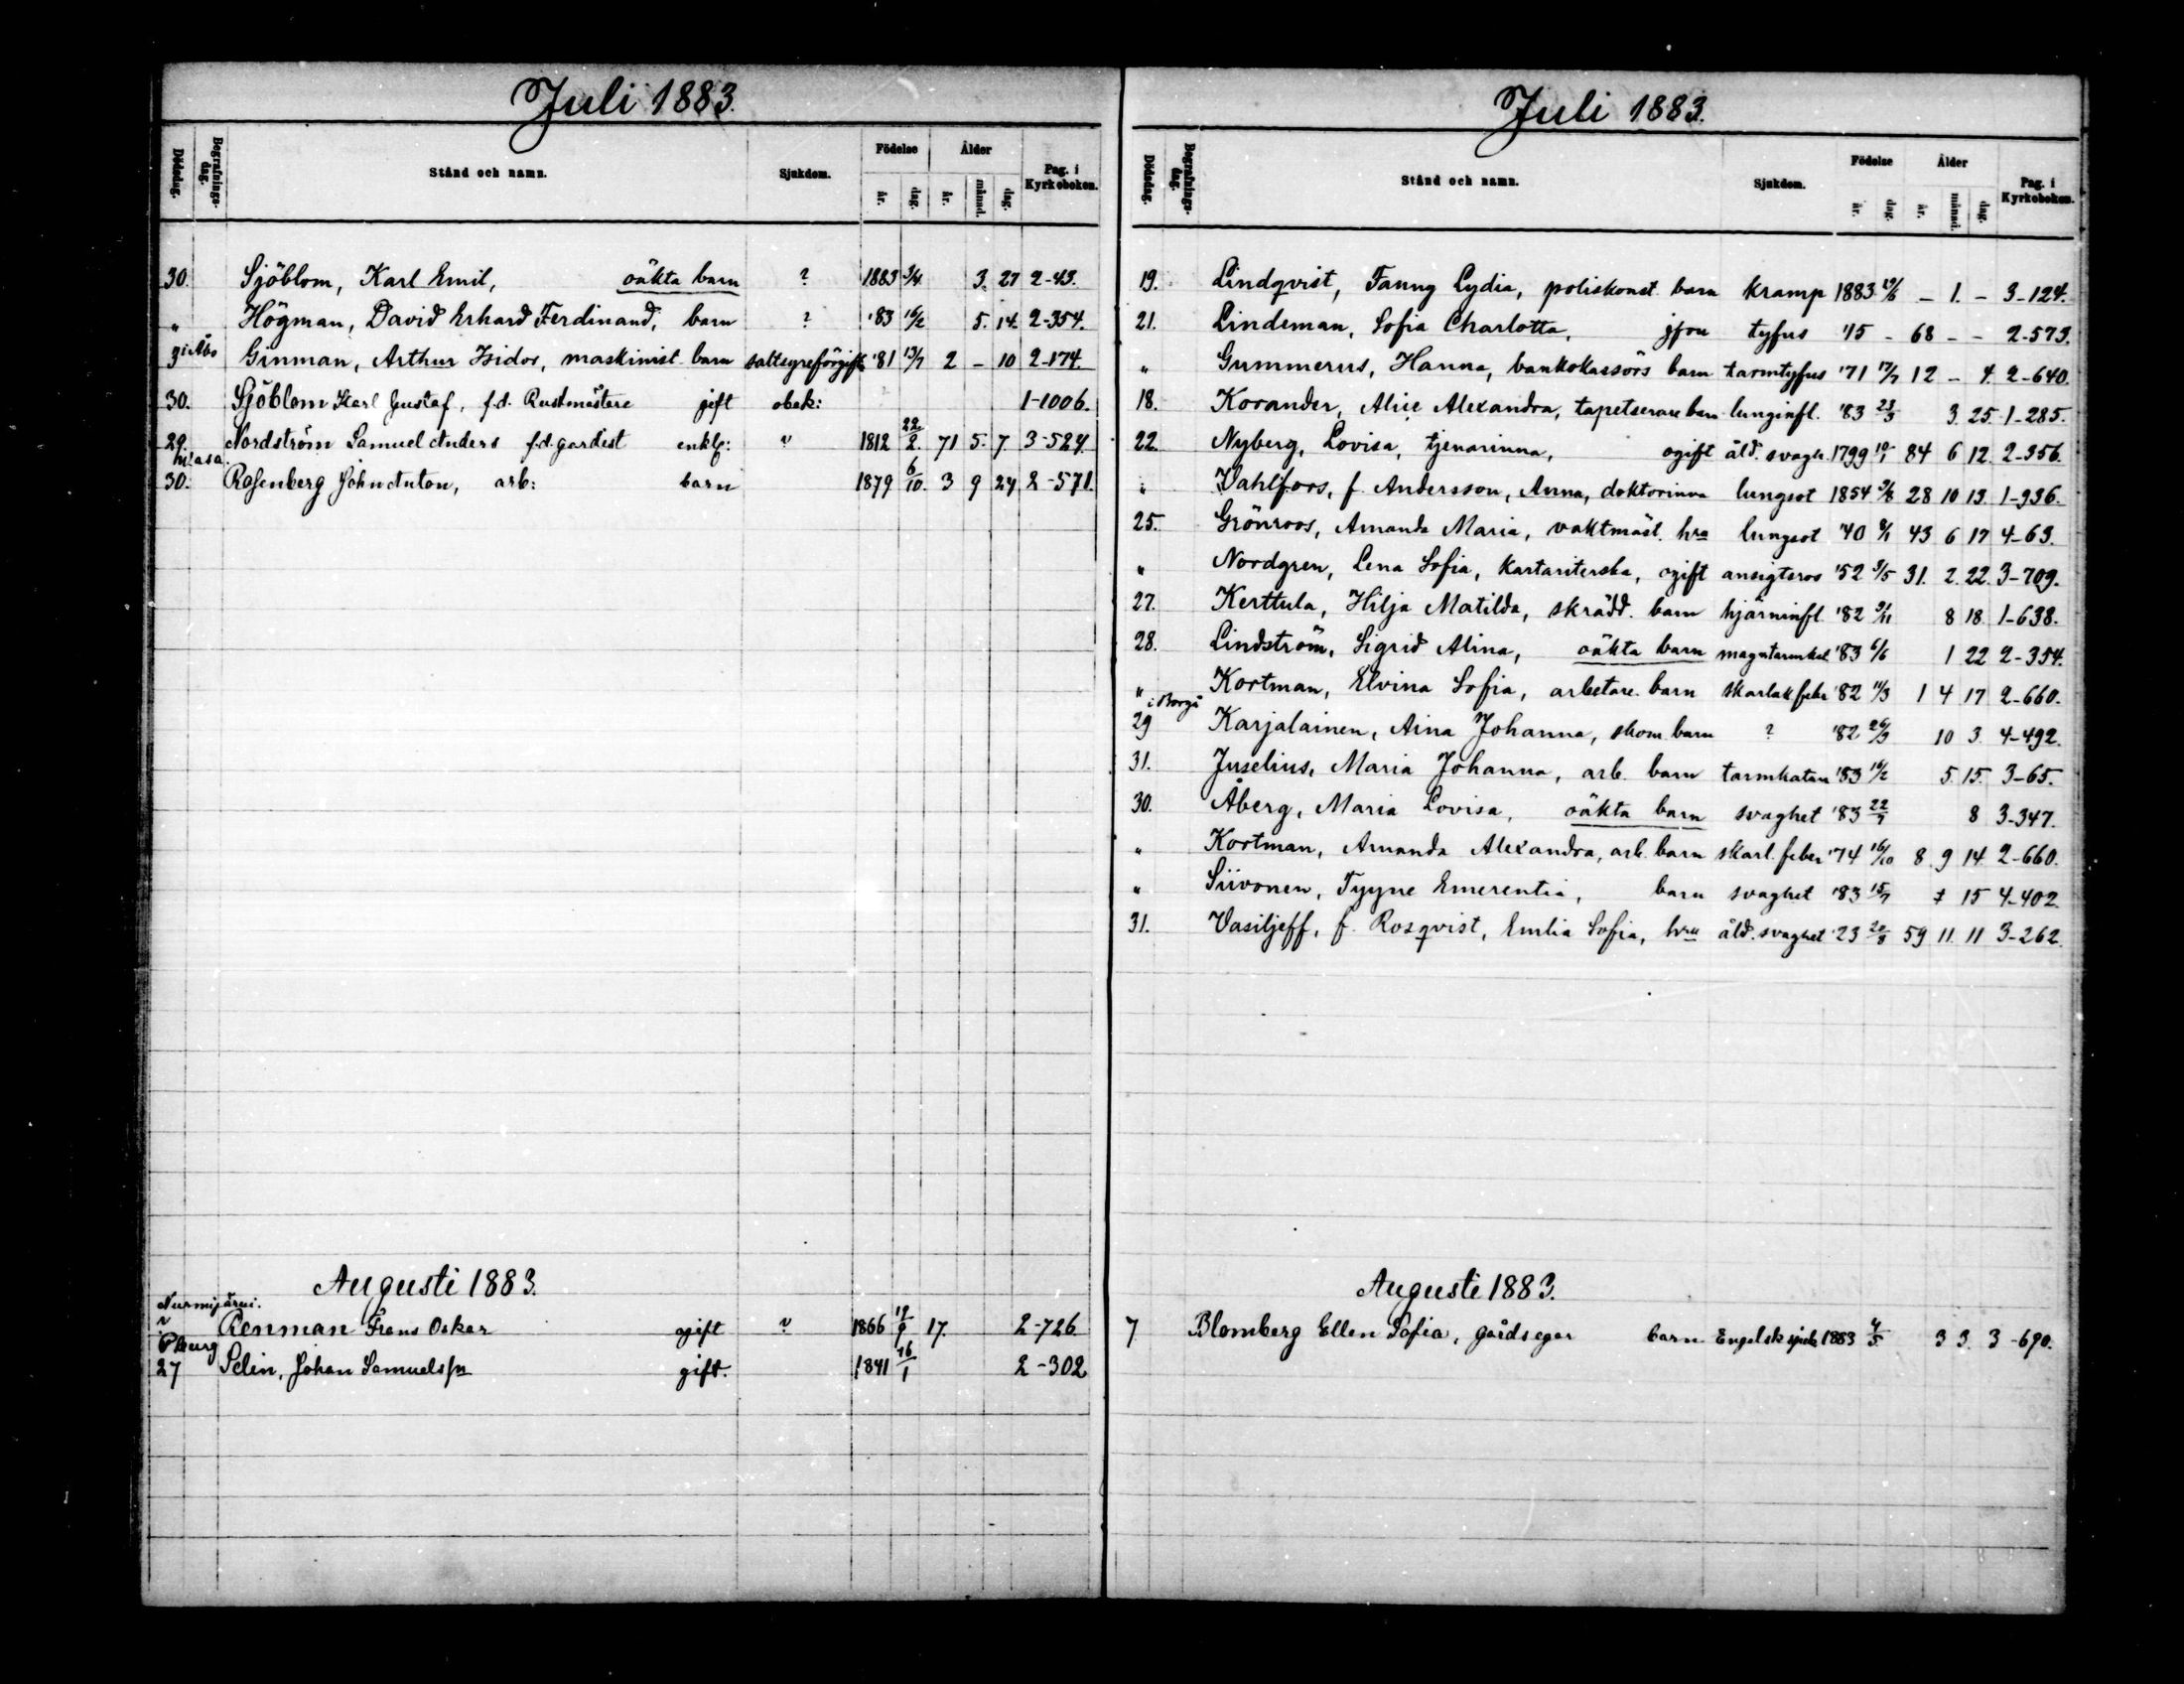 Juli 1883.
Dödsdag. Begrafnings-dag. Stånd och namn. Sjukdom. Födelse år. dag. Ålder år. månad. dag. Pag. i Kyrkoboken.
30. Sjöblom, Karl Emil, oäkta barn ? 1883 3/4 3. 27 2-43.
" Högman, David Erhard Ferdinand, barn ? '83 16/2 5. 14. 2-354.
i Åbo
3 Ginman, Arthur Isidor, maskinist barn saltsyreförgift. '81 13/7 2 - 10 2-174.
30. Sjöblom Karl Gustaf, f.d. Rustmästare gift obek: 1-1006.
29. Nordström Samuel Anders f.d. gardist enkl: " 1812 22/2. 71 5. 7. 3-524.
30. Rosenberg John Anton, arb: barn 1879 6/10. 3 9 24 2-571.
Augusti 1883.
Nurmijärvi.
Renman Frans Oskar ogift ? 1866 19/9 17. 2-726
Pburg
27 Selin, Johan Samuelsson gift. 1841 16/1 2-302
Juli 1883.
Dödsdag. Begrafnings-dag. Stånd och namn. Sjukdom. Födelse år. dag. Ålder år. månad. dag. Pag. i Kyrkoboken.
19. Lindqvist, Fanny Lydia, poliskonst. barn kramp 1883 19/6 - 1. - 3-124.
21. Lindeman, Sofia Charlotta, jfru tyfus '15 - 68 - - 2-573.
" Gummerus, Hanna, bankokassörs barn tarmtyfus '71 17/7 12 - 4. 2-640.
18. Korander, Alice Alexandra, tapetserare barn lunginfl. '83 23/3 3. 25. 1-285.
22. Nyberg, Lovisa, tjenarinna, ogift åld. svagh. 1799 10/1 84 6 12. 2-356.
" Vahlfors, f. Andersson, Anna, doktorinna lungsot 1854 9/8 28 10 13. 1-936.
25. Grönroos, Amanda Maria, vaktmäst. hra lungsot '40 8/1 43 6 17 4-63.
" Nordgren, Lena Sofia, kartariterska, ogift ansigtsros '52 3/5 31. 2. 22. 3-709.
27. Kerttula, Hilja Matilda, skrädd. barn hjärninfl. '82 9/11 8 18. 1-638.
28. Lindström, Sigrid Alina, oäkta barn '83 6/6 1 22 2-354.
" Kortman, Elvina Sofia, arbetare barn skarlakfeber '82 11/3 1 4 17 2-660.
i Borgå
29 Karjalainen, Aina Johanna, skom. barn ? '82 26/9 10 3. 4-492.
31. Juselius, Maria Johanna, arb. barn tarmkatarr '83 16/2 5. 15. 3-65.
30. Åberg, Maria Lovisa, oäkta barn svaghet '83 22/7 8 3-347.
" Kortman, Amanda Alexandra, arb. barn skarl. feber '74 16/10 8. 9 14. 2-660.
" Siivonen, Tyyne Emerentia, barn svaghet '83 15/7 15 4-402.
31. Vasiljeff, f. Rosqvist, Emlia Sofia, hru åld. svaghet '23 20/8 59 11. 11 3-262.
Augusti 1883.
7 Blomberg Ellen Sofia, gårdsegar barn Engelsk sjuk. 1883 4/5. 3 3. 3-690.